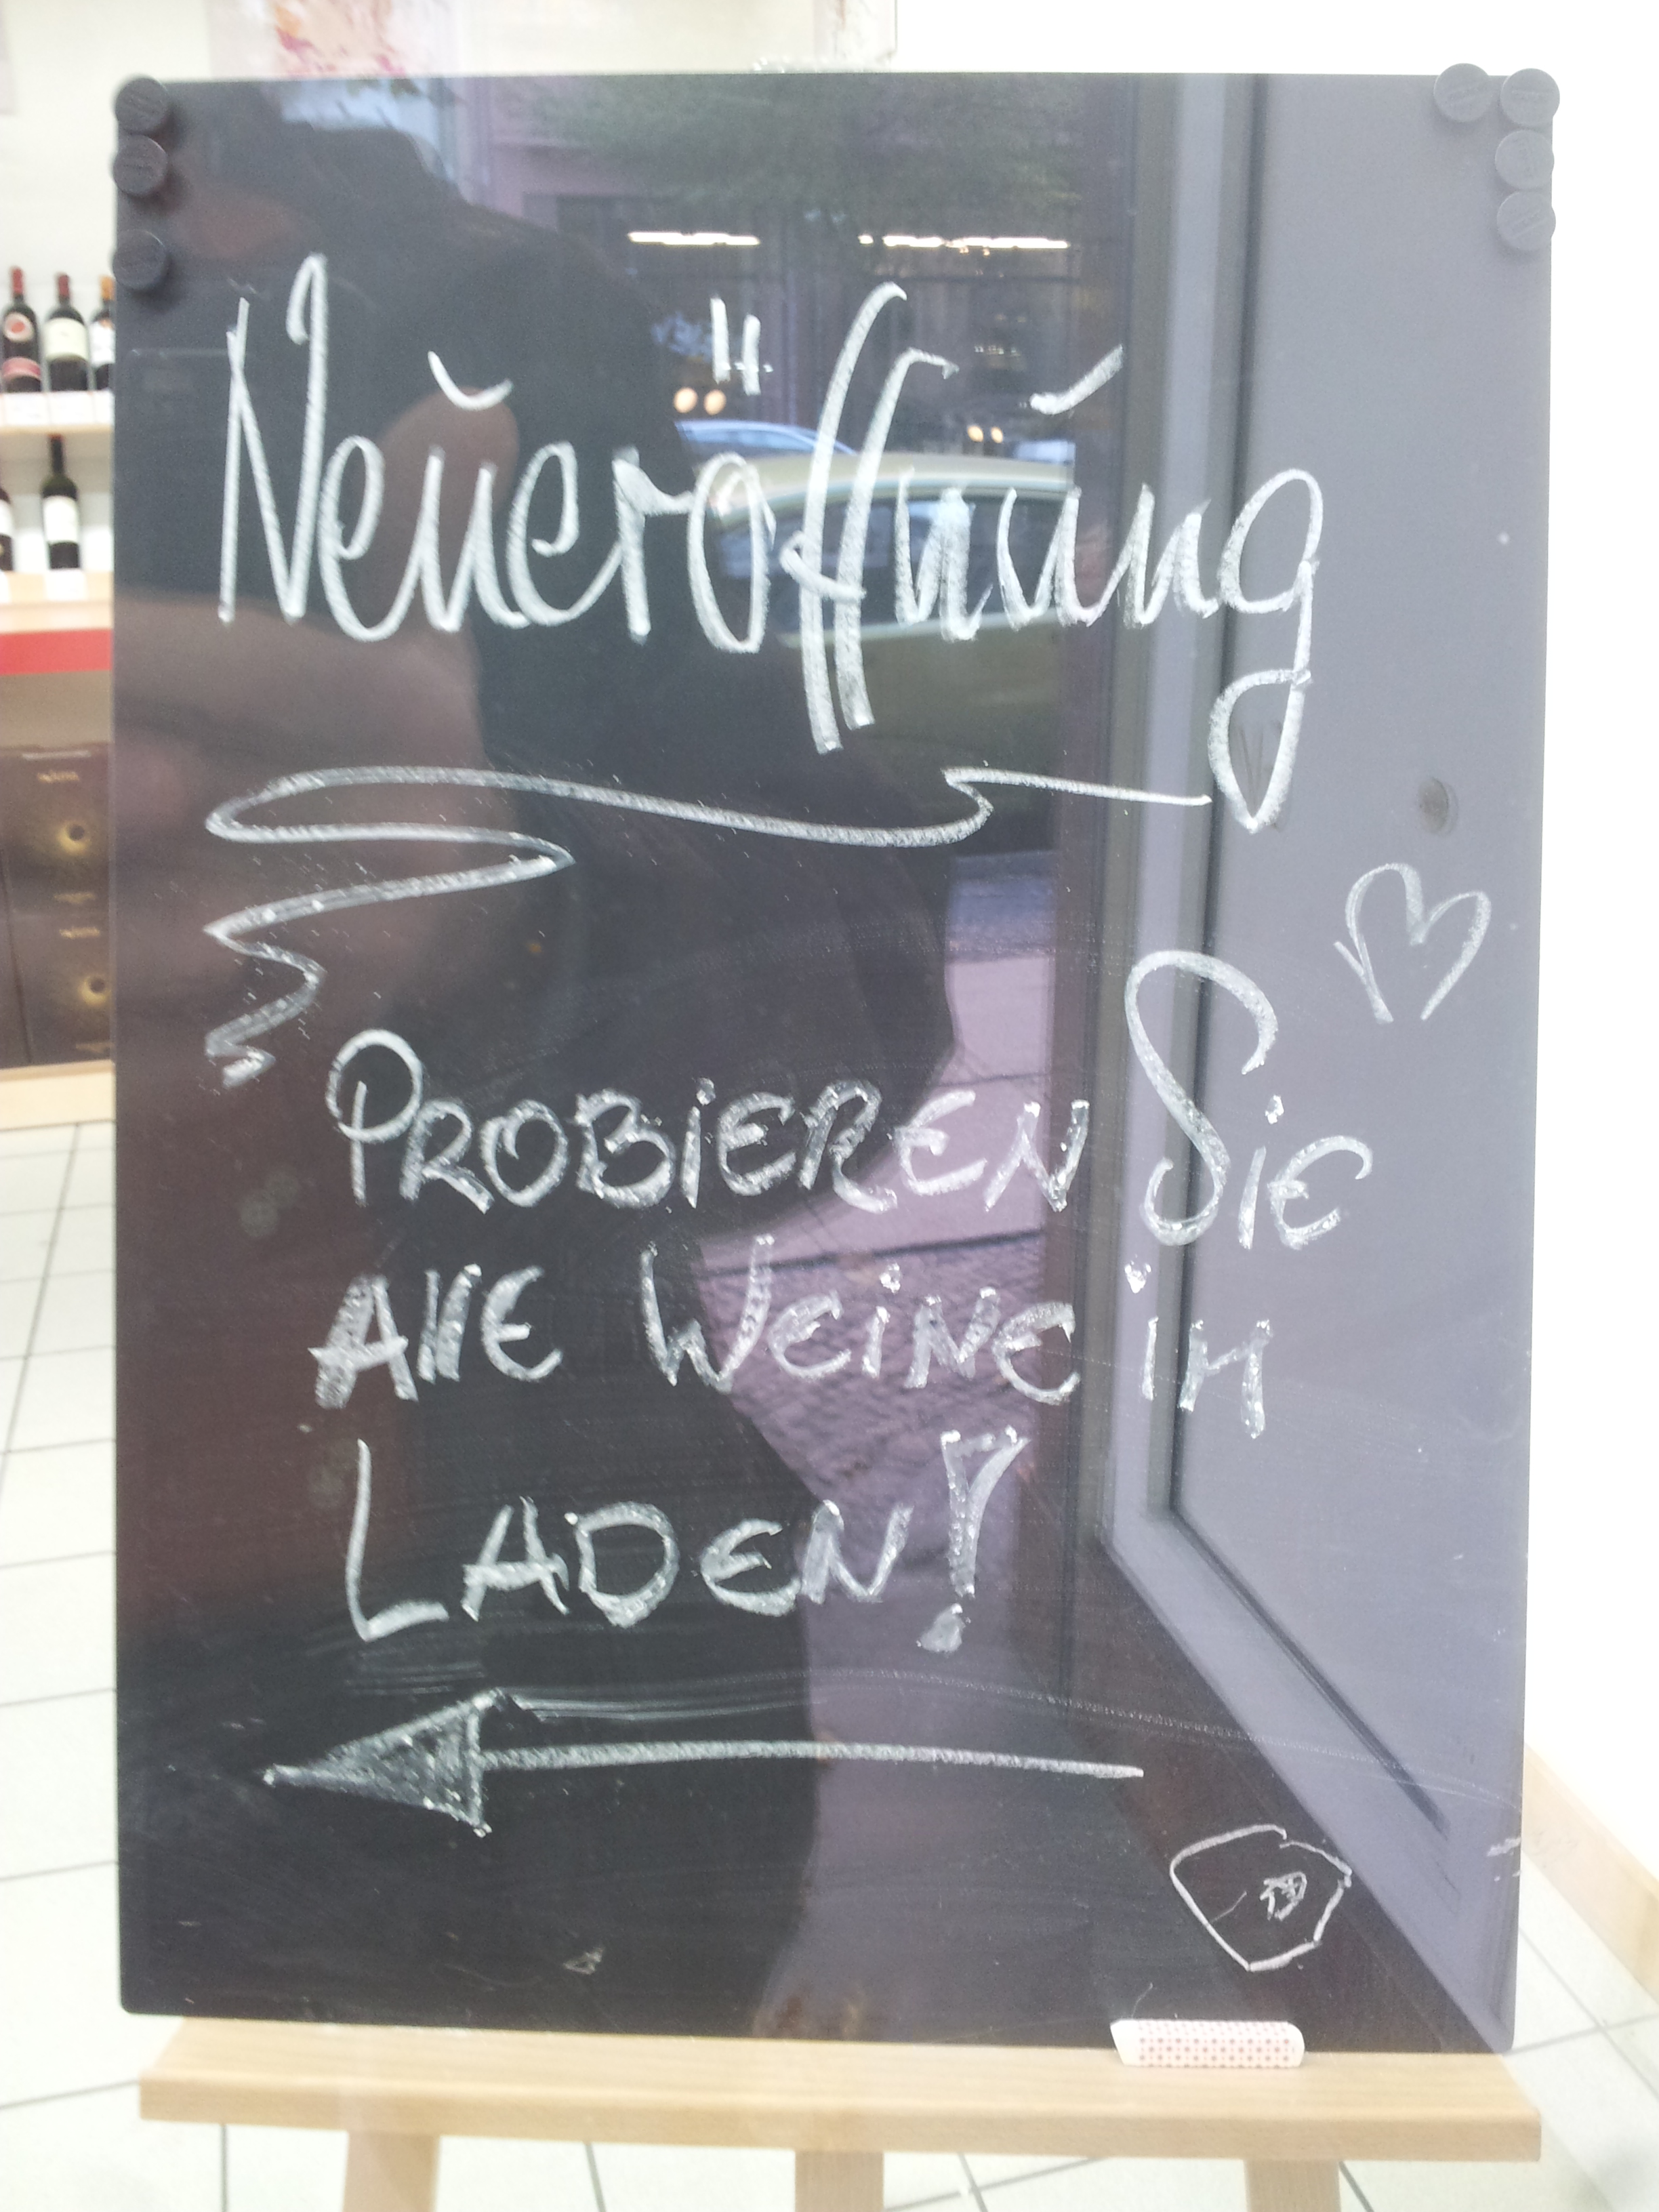 Neueröffnung
PROBIEREN SIE
AllE WEINE iM
LADEN!